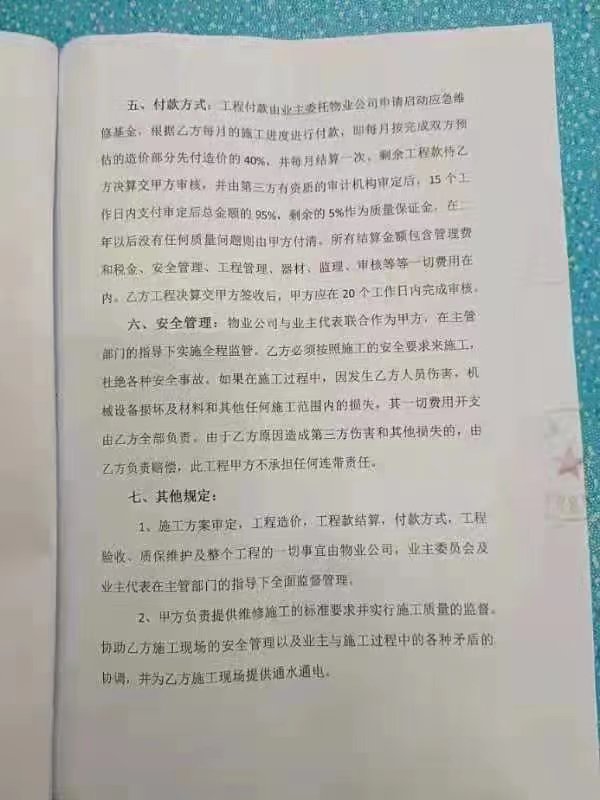 五、付款方式：工程付款由业主委托物业公司申请启动应急维
修基金，根据乙方每月的施工进度进行付款，即每月按完成双方预
估的造价部分先付造价的 40%，并每月结算一次，剩余工程款待乙
方决算交甲方审核，并由第三方有资质的审计机构审定后，15 个工
作日内支付审定后总金额的 95%，剩余的 5%作为质量保证金，在二
年以后没有任何质量问题则由甲方付清。所有结算金额包含管理费
和税金、安全管理、工程管理、器材、监理、审核等等一切费用在
内。乙方工程决算交甲方签收后，甲方应在 20 个工作日内完成审核。
六、安全管理：物业公司与业主代表联合作为甲方，在主管
部门的指导下实施全程监管。乙方必须按照施工的安全要求来施工，
杜绝各种安全事故。如果在施工过程中，因发生乙方人员伤害，机
械设备损坏及材料和其他任何施工范围内的损失，其一切费用开支
由乙方全部负责。由于乙方原因造成第三方伤害和其他损失的，由
乙方负责赔偿，此工程甲方不承担任何连带责任。
七、其他规定：
1、施工方案审定，工程造价，工程款结算，付款方式，工程
验收、质保维护及整个工程的一切事宜由物业公司，业主委员会及
业主代表在主管部门的指导下全面监督管理。
2、甲方负责提供维修施工的标准要求并实行施工质量的监督。
协助乙方施工现场的安全管理以及业主与施工过程中的各种矛盾的
协调，并为乙方施工现场提供通水通电。